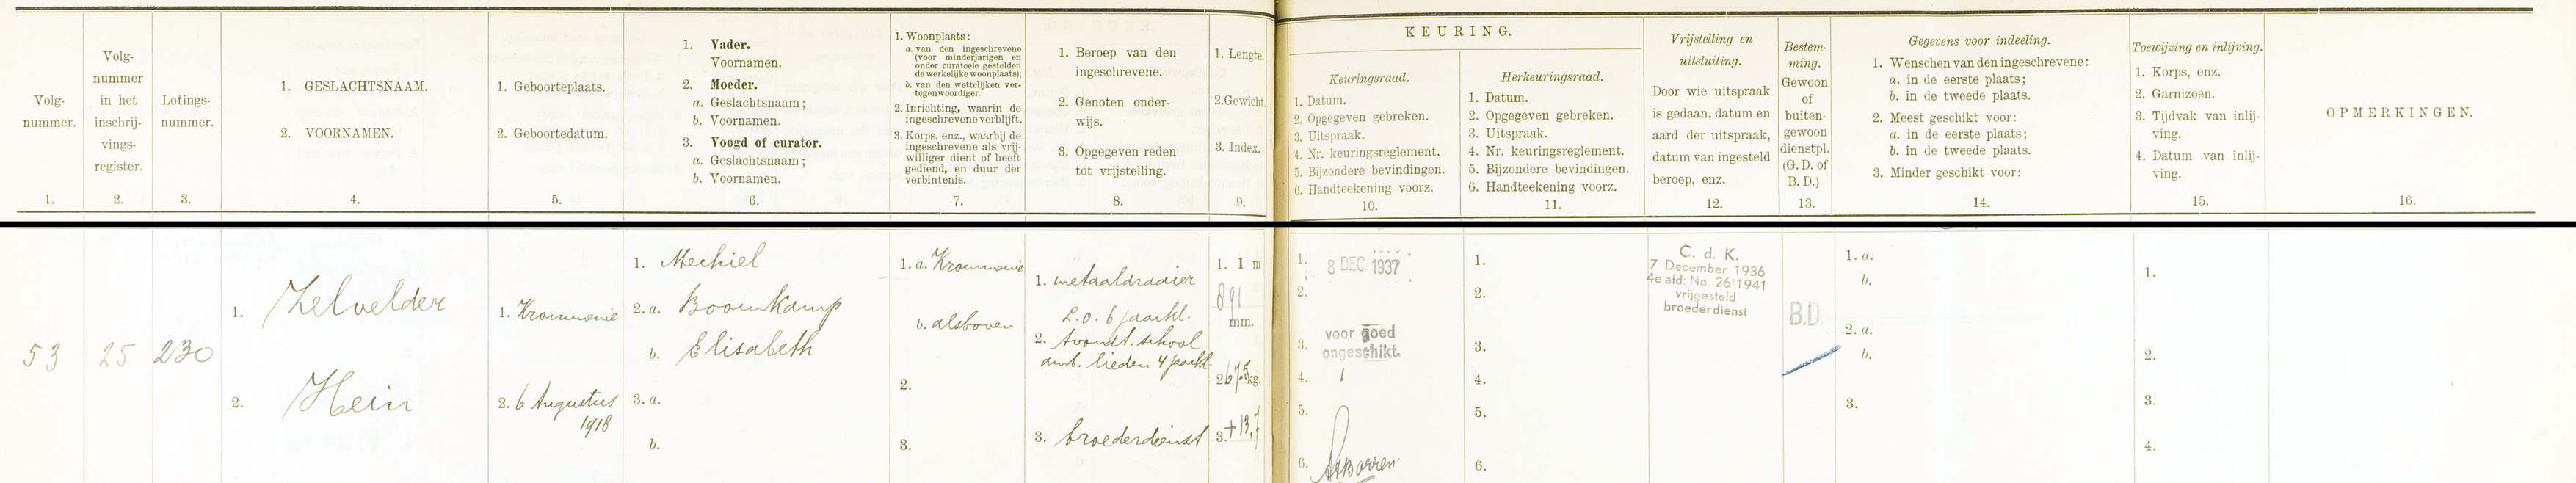 Volg-
nummer.
1.
Volg-
nummer
in het
inschrij-
vings-
register.
2.
Lotings-
nummer.
3.
1. GESLACHTSNAAM.
2. VOORNAMEN.
4.
1. Geboorteplaats.
2. Geboortedatum.
5.
1. Vader.
Voornamen.
2. Moeder.
a. Geslachtsnaam;
b. Voornamen.
3. Voogd of curator.
a. Geslachtsnaam;
b. Voornamen.
6.
1. Woonplaats:
a. van den ingeschrevene
(voor minderjarigen en
onder curateele gestelden
de werkelijke woonplaats);
b. van den wettelijken ver-
tegenwoordiger.
2. Inrichting, waarin de
ingeschrevene verblijft.
3. Korps, enz., waarbij de
ingeschrevene als vrij-
williger dient of heeft
gediend, en duur der
verbintenis.
7.
1. Beroep van den
ingeschrevene.
2. Genoten onder-
wijs.
3. Opgegeven reden
tot vrijstelling.
8.
1. Lengte.
2. Gewicht.
3. Index.
9.
KEURING.
Keuringsraad.
1. Datum.
2. Opgegeven gebreken.
3. Uitspraak.
4. Nr. keuringsreglement.
5. Bijzondere bevindingen.
6. Handteekening voorz.
10.
Herkeuringsraad.
1. Datum.
2. Opgegeven gebreken.
3. Uitspraak.
4. Nr. keuringsreglement.
5. Bijzondere bevindingen.
6. Handteekening voorz.
11.
Vrijstelling en
uitsluiting.
Door wie uitspraak
is gedaan, datum en
aard der uitspraak,
datum van ingesteld
beroep, enz.
12.
Bestem-
ming.
Gewoon
of
buiten-
gewoon
dienstpl.
(G. D. of
B. D.)
13.
Gegevens voor indeeling.
1. Wenschen van den ingeschrevene:
a. in de eerste plaats;
b. in de tweede plaats.
2. Meest geschikt voor:
a. in de eerste plaats;
b. in de tweede plaats.
3. Minder geschikt voor:
14.
Toewijzing en inlijving.
1. Korps, enz.
2. Garnizoen.
3. Tijdvak van inlij-
ving.
4. Datum van inlij-
ving.
15.
OPMERKINGEN.
16.
53
25
230
1. Zelvelder
2. Hein
1. Krommenie
2. 6 Augustus
1918
1. Mechiel
2. a. Boomkamp
b. Elisabeth
3. a.
b.
1. a. Krommenie
b. alsboven
2.
3.
1. metaaldraaier
L.O. 6 jaarkl.
2. Avondt. school
amb. lieden 4 jaarkl.
3. broederdienst
1. 1 m
891
mm.
2. 67.5 kg.
3. +13,7
1. 8 DEC. 1937
2.
3. voor goed
ongeschikt.
4. 1
5.
6.
1.
2.
3.
4.
5.
6.
C. d. K.
7 December 1936
4e afd: No. 26/1941
vrijgesteld
broederdienst
B.D.
1. a.
b.
2. a.
b.
3.
1.
2.
3.
4.